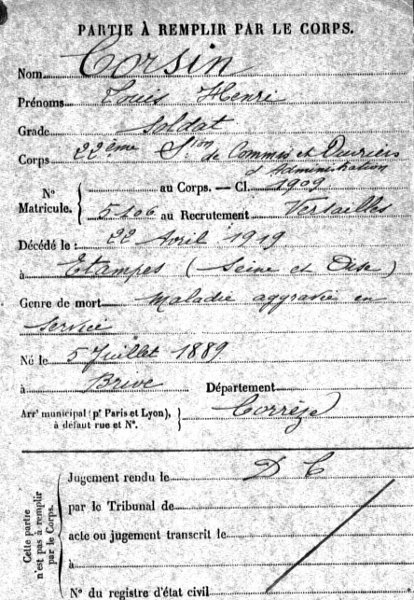 PARTIE À REMPLIR PAR LE CORPS.
Nom Corsin
Prénoms Louis Henri
Grade soldat
Corps 22ème Son de Commis et Ouvriers
d'Administration
Nº Matricule. { au Corps. — Cl. 1909
5406 au Recrutement Versailles
Décédé le : 22 Avril 1919
à Etampes (Seine et Oise)
Genre de mort Maladie aggravée en
service
Né le 5 Juillet 1889
à Brive Département Corrèze
Arrt municipal (pr Paris et Lyon),
à défaut rue et Nº.
Cette partie n'est pas à remplir par le Corps.
Jugement rendu le D C
par le Tribunal de
acte ou jugement transcrit le
à
Nº du registre d'état civil